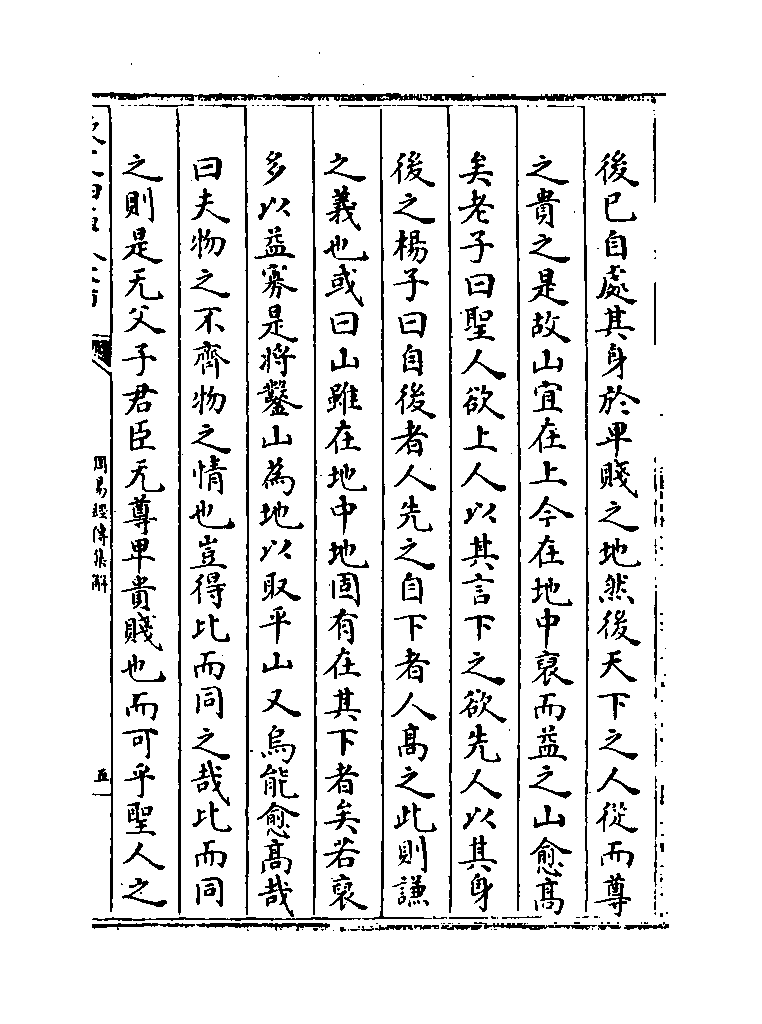 後已自處其身於卑賤之地然後天下之人從而尊
之貴之是故山宜在上今在地中裒而益之山愈髙
矣老子曰聖人欲上人以其言下之欲先人以其身
後之楊子曰自後者人先之自下者人髙之此則謙
之義也或曰山雖在地中地固有在其下者矣若裒
多以益寡是將鑿山為地以取平山又烏能愈髙哉
曰夫物之不齊物之情也豈得比而同之哉比而同
之則是无父子君臣无尊卑貴賤也而可乎聖人之
周易經傳集解
五